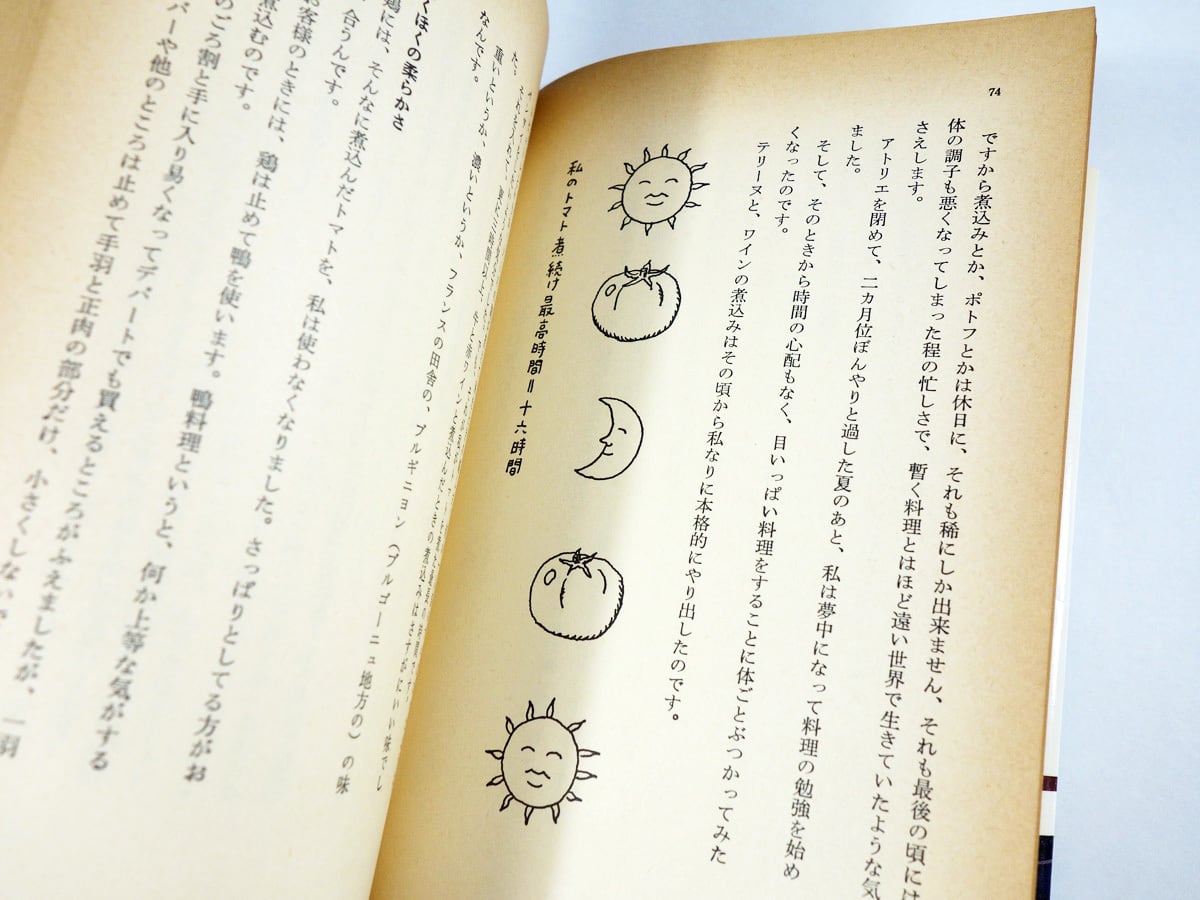 74
ですから煮込みとか、ポトフとかは休日に、それも稀にしか出来ません、それも最後の頃には
体の調子も悪くなってしまった程の忙しさで、暫く料理とはほど遠い世界で生きていたような気
さえします。
アトリエを閉めて、二カ月位ぼんやりと過した夏のあと、私は夢中になって料理の勉強を始め
ました。
そして、そのときから時間の心配もなく、目いっぱい料理をすることに体ごとぶつかってみた
くなったのです。
テリーヌと、ワインの煮込みはその頃から私なりに本格的にやり出したのです。
私のトマト煮続け最高時間＝十六時間
た。
重いというか、濃いというか、フランスの田舎の、ブルギニヨン（ブルゴーニュ地方の）の味
なんです。
くほくの柔らかさ
鶏には、そんなに煮込んだトマトを、私は使わなくなりました。さっぱりとしてる方がお
合うんです。
お客様のときには、鶏は止めて鴨を使います。鴨料理というと、何か上等な気がする
煮込むのです。
のごろ割と手に入り易くなってデパートでも買えるところがふえましたが、一羽
バーや他のところは止めて手羽と正肉の部分だけ、小さくしないで